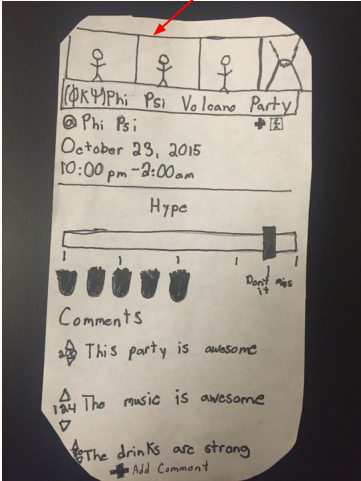 (ΦΚΨ)Phi Psi Volcano Party
@ Phi Psi
October 23, 2015
10:00 pm - 2:00am
Hype
Don't miss
it
Comments
This party is awesome
124 The music is awesome
The drinks are strong
Add Comment